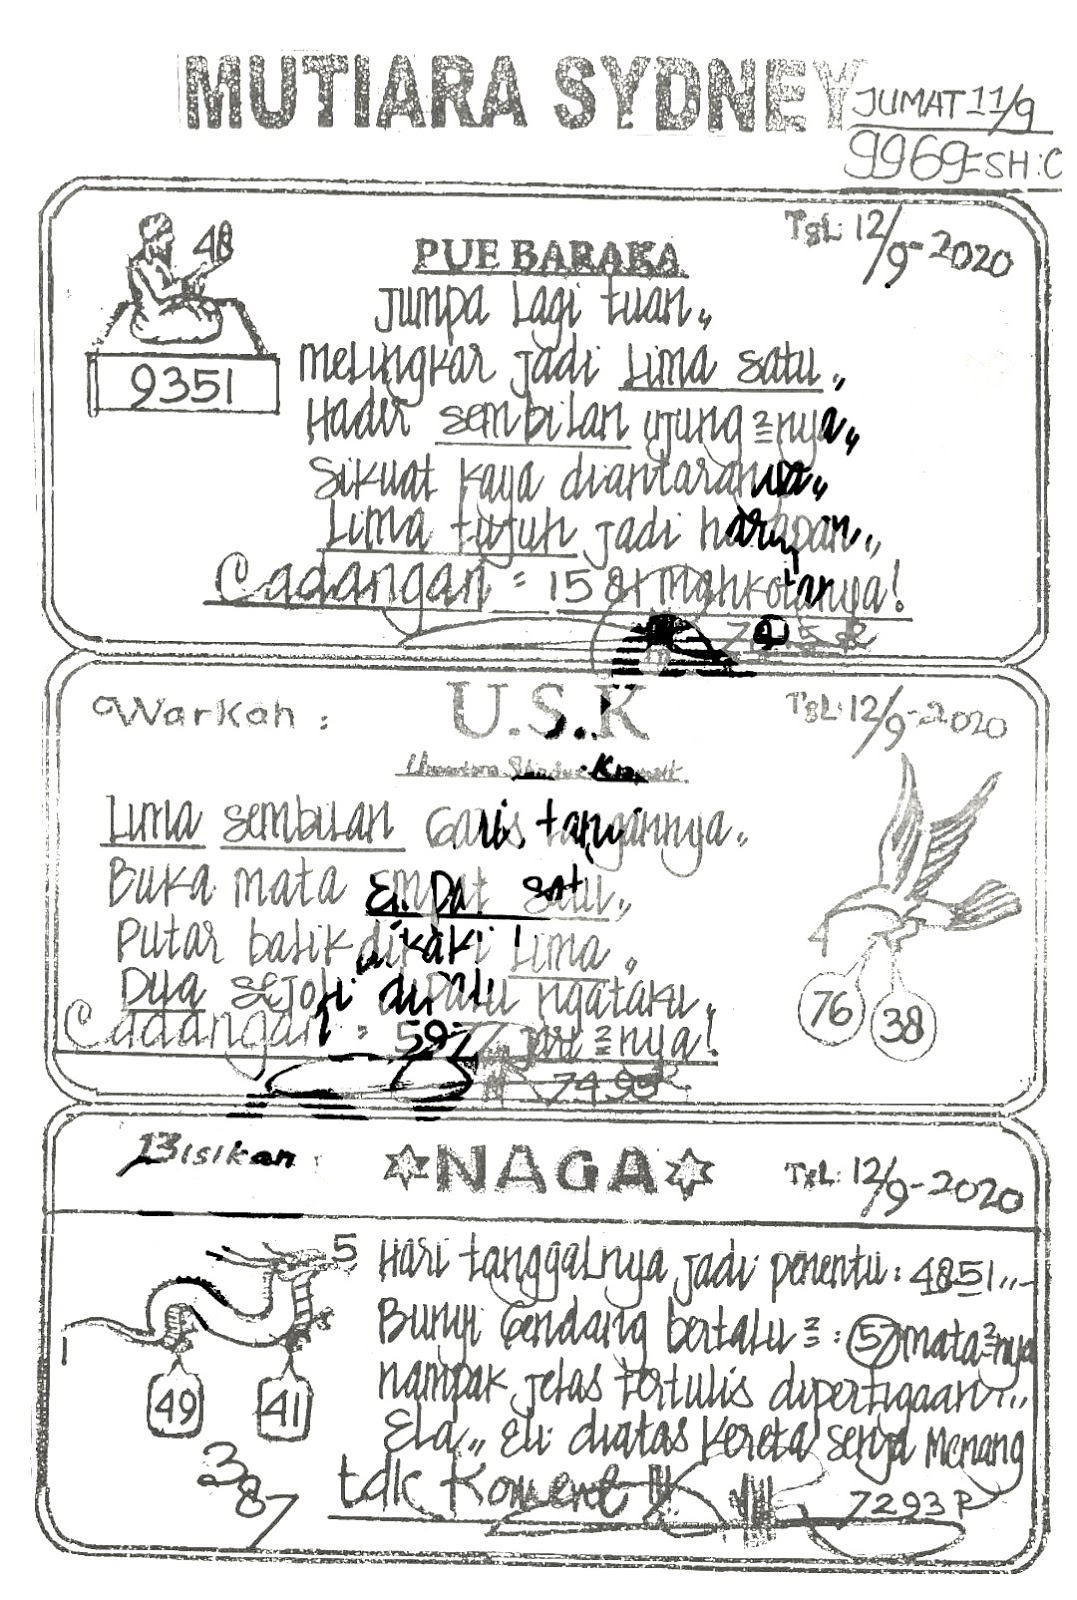 MUTIARA SYDNEY
JUMAT 11/9
9969=SH:C
Tgl: 12/9-2020
48
PUE BARAKA
9351
Jumpa lagi tuan,,
Melingkar jadi lima satu,,
Hadir sembilan ujung ²nya,,
Sikuat kaya diantaranya,,
Lima tujuh jadi harapan,,,
Cadangan = 15 84 mahkotanya!
Warkah :
U.S.K
Tgl: 12/9-2020
Lima sembilan garis tangannya,,
Buka mata empat satu,,
Putar balik dikaki lima,,
Dua sejoli dipalu ngataku,
Cadangan = 597 jari ²nya!
4
76
38
Bisikan :
NAGA
Tgl: 12/9-2020
5
1
49
41
387
Hari tanggalnya jadi penentu: 4851,,-
Bunyi gendang bertalu ² : 57 mata²nya
nampak jelas tertulis dipertigaan...
Ela,, Eli diatas kereta senja menang
tdk
7293 P